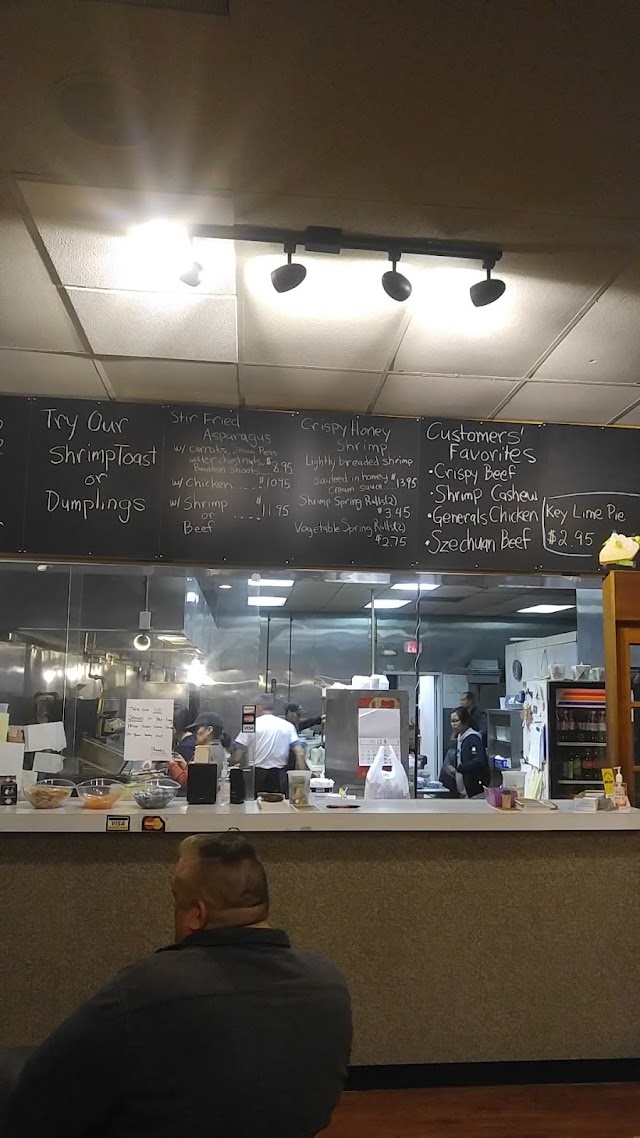 Try Our
Shrimp Toast
or
Dumplings
Stir Fried
Asparagus
w/ carrots, Snow Peas
water chestnuts, $
Bamboo Shoots 8.95
w/ Chicken .... $10.95
w/ Shrimp $
or .... 11.95
Beef
Crispy Honey
Shrimp
Lightly breaded shrimp
Sauteed in honey $
cream sauce ... 13.95
Shrimp Spring Rolls (2)
$3.45
Vegetable Spring Rolls (2)
$2.75
Customers'
Favorites
• Crispy Beef
• Shrimp Cashew
• Generals Chicken
• Szechuan Beef
Key Lime Pie
$2.95
VISA
VISA
MasterCard